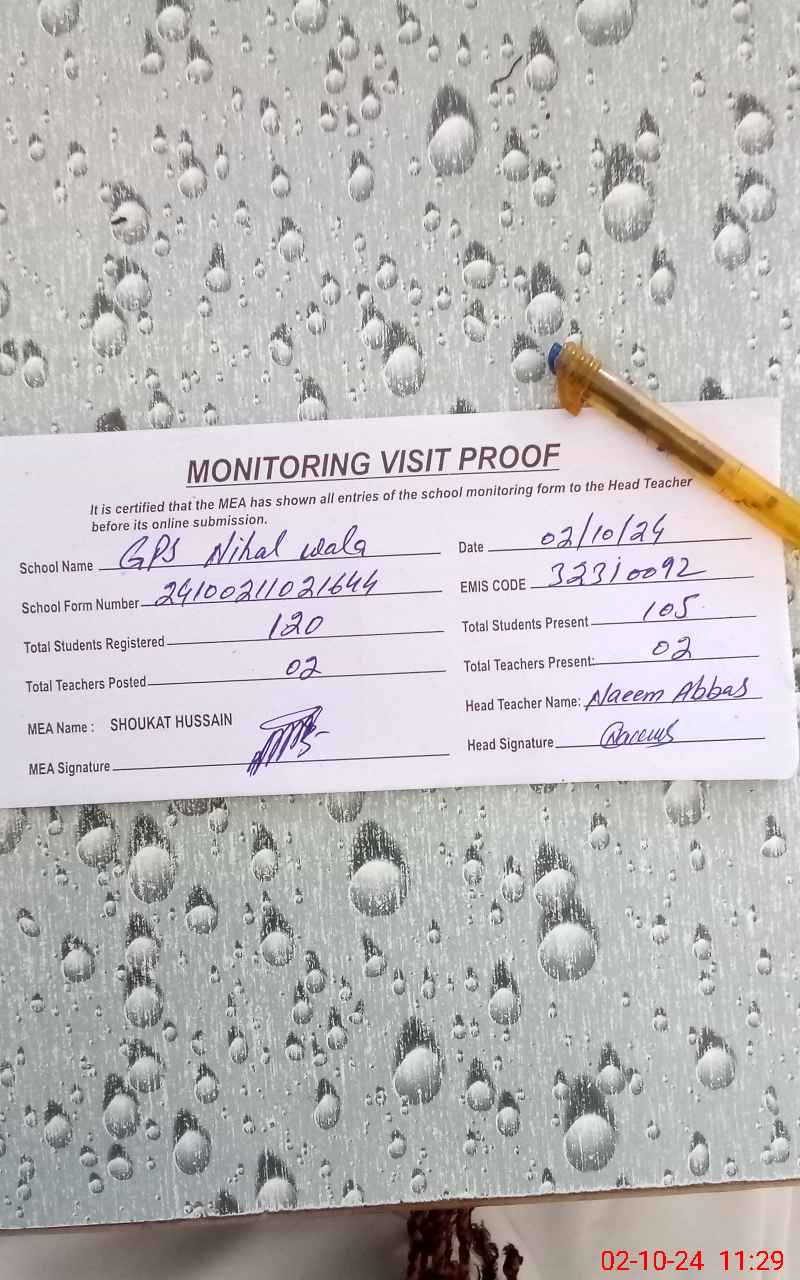 MONITORING VISIT PROOF
It is certified that the MEA has shown all entries of the school monitoring form to the Head Teacher
before its online submission.
School Name GPS Nihal wala Date 02/10/24
School Form Number 24100211021644 EMIS CODE 32310092
Total Students Registered 120 Total Students Present 105
Total Teachers Posted 02 Total Teachers Present: 02
MEA Name : SHOUKAT HUSSAIN Head Teacher Name: Naeem Abbas
MEA Signature Head Signature
02-10-24 11:29